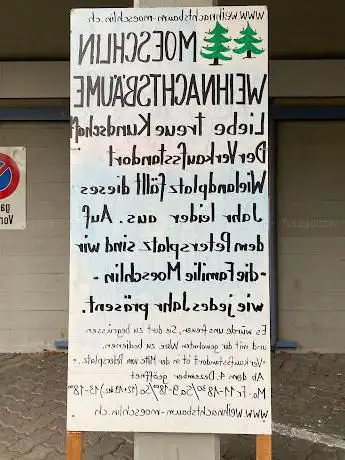 www.weihnachtsbaum-moeschlin.ch
MOESCHLIN
WEIHNACHTSBÄUME
Liebe treue Kundschaft
Der Verkaufsstandort
Wielandplatz fällt dieses
Jahr leider aus. Auf
dem Petersplatz sind wir
-die Familie Moeschlin-
wie jedes Jahr präsent.
Es würde uns freuen, Sie dort zu begrüssen
und mit der gewohnten Ware zu bedienen.
-Verkaufsstandort ist in der Mitte vom Petersplatz.-
Ab dem 4. Dezember geöffnet
Mo.-Fr. 11-18³⁰/Sa 9-18⁰⁰/So
www.weihnachtsbaum-moeschlin.ch